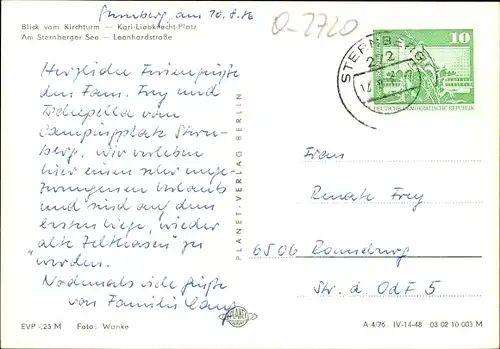 Sternberg, am 10.8.76
Q-2720
Blick vom Kirchturm — Karl-Liebknecht-Platz
Am Sternberger See — Leonhardstraße
Herzliche Feriengrüße
den Fam. Frey und
vom
Campingplatz Stern-
berg. Wir verleben
hier einen sehr unge-
zwungenen Urlaub
und sind auf dem
besten Wege, wieder
alte Zelthasen zu
werden.
Nochmals viele Grüße
von Familie Lang
PLANET-VERLAG BERLIN
STERNBERG
272
10
DEUTSCHE DEMOKRATISCHE REPUBLIK
Frau
Renate Frey
6506 Ronneburg
Str. d. OdF 5
EVP -,25 M Foto: Wanke
PLANET
A 4/76 IV-14-48 03 02 10 003 M